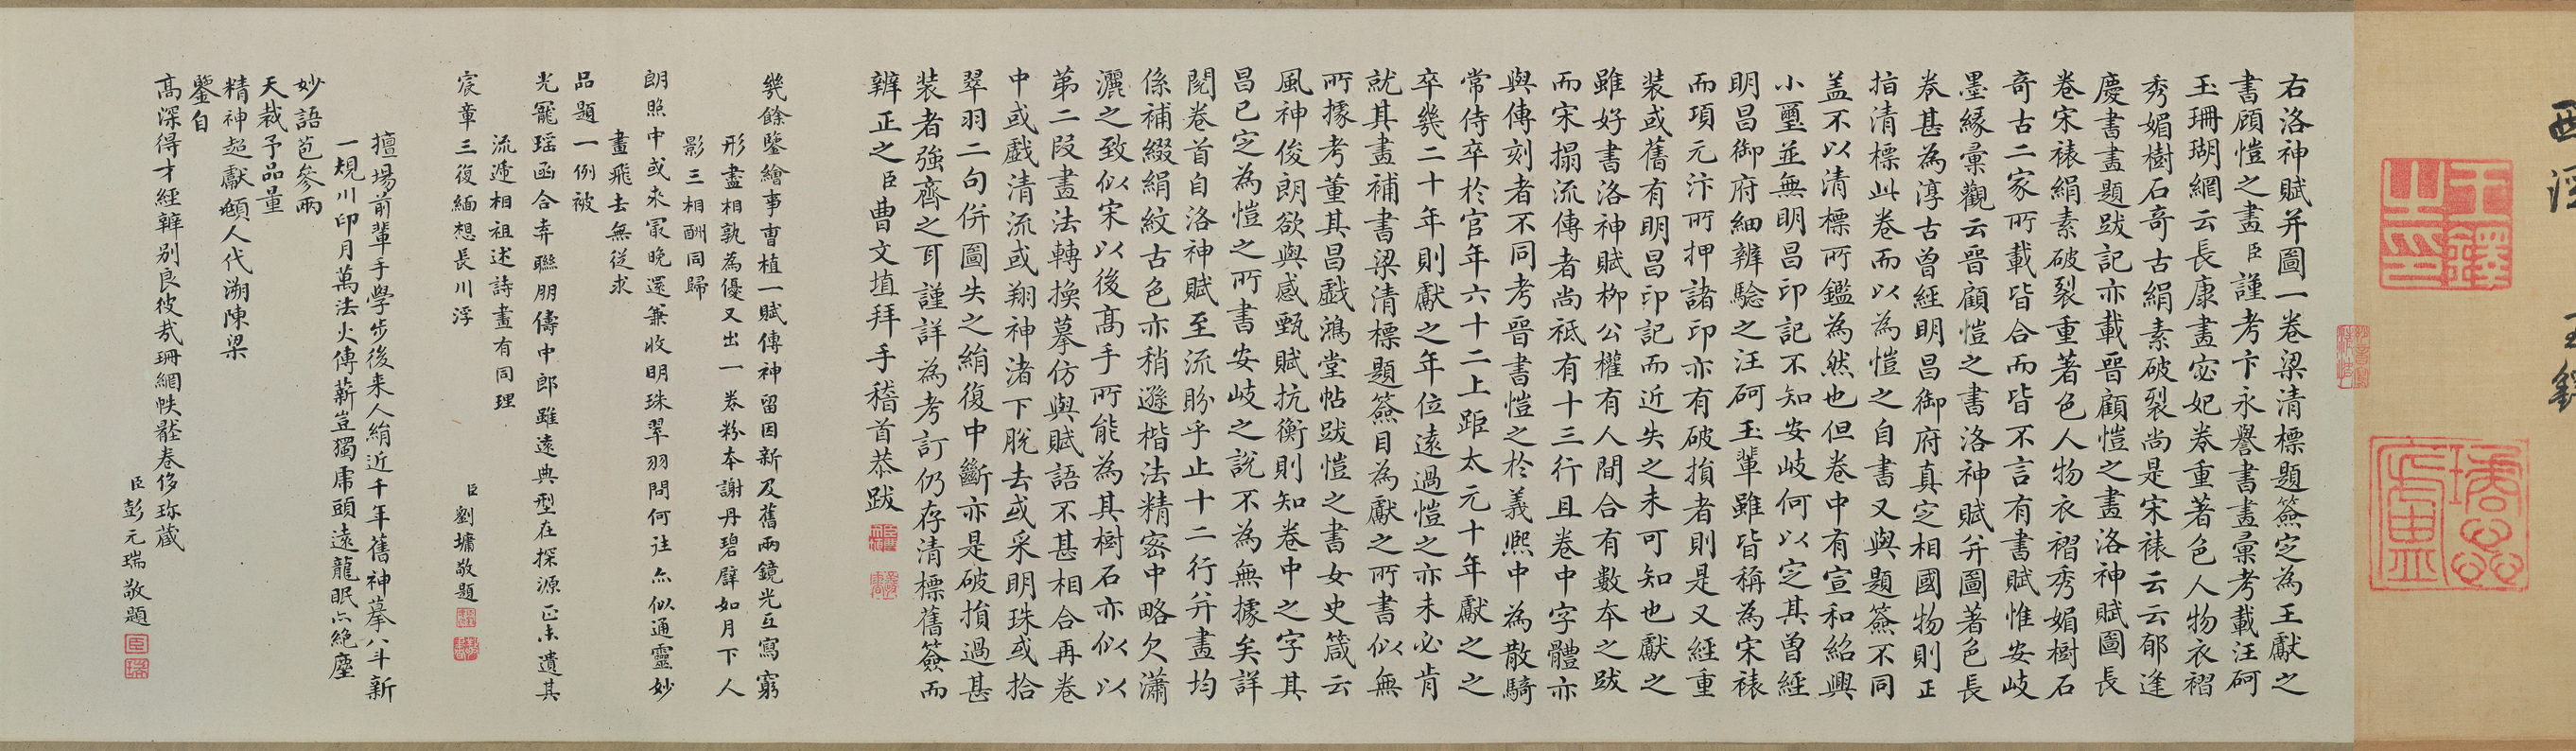 王鐸
王鐸之印
右洛神賦并圖一卷梁清標題簽定為王獻之
書顧愷之畫臣謹考卞永譽書畫彙考載汪砢
玉珊瑚網云長康畫宓妃卷重著色人物衣褶
秀媚樹石奇古絹素破裂尚是宋裱云云郁逢
慶書畫題跋記亦載晉顧愷之畫洛神賦圖長
卷宋裱絹素破裂重著色人物衣褶秀媚樹石
奇古二家所載皆合而皆不言有書賦惟安岐
墨緣彙觀云晉顧愷之書洛神賦并圖著色長
卷甚為淳古曾經明昌御府真定相國物則正
指清標此卷而以為愷之自書又與題簽不同
盖不以清標所鑑為然也但卷中有宣和紹興
小璽並無明昌印記不知安岐何以定其曾經
明昌御府細辨驗之汪砢玉輩雖皆稱為宋裱
而項元汴所押諸印亦有破損者則是又經重
裝或舊有明昌印記而近失之未可知也獻之
雖好書洛神賦柳公權有人間合有數本之跋
而宋搨流傳者尚祗有十三行且卷中字體亦
與傳刻者不同考晉書愷之於義熙中為散騎
常侍卒於官年六十二上距太元十年獻之之
卒幾二十年則獻之年位遠過愷之亦未必肯
就其畫補書梁清標題簽目為獻之所書似無
所據考董其昌戲鴻堂帖跋愷之書女史箴云
風神俊朗欲與感甄賦抗衡則知卷中之字其
昌已定為愷之所書安岐之說不為無據矣詳
閱卷首自洛神賦至流盼乎止十二行并畫均
係補綴絹紋古色亦稍遜楷法精密中略欠瀟
灑之致似宋以後高手所能為其樹石亦似以
第二段畫法轉換摹仿與賦語不甚相合再卷
中或戲清流或翔神渚下脫去或采明珠或拾
翠羽二句併圖失之絹復中斷亦是破損過甚
裝者強齊之耳謹詳為考訂仍存清標舊簽而
辨正之臣曹文埴拜手稽首恭跋
幾餘鑒繪事曹植一賦傳神留因新及舊兩鏡光互寫窮
形盡相孰為優又出一卷粉本謝丹碧騂如月下人
影三相酬同歸
朗照中或来冣晚還兼收明珠翠羽問何往亦似通靈妙
畫飛去無從求
品題一例被
光寵瑶函合弆聯朋儔中郎雖遠典型在探源正未遺其
流遞相祖述詩畫有同理
宸章三復緬想長川浮
臣劉墉敬題
擅場前輩手學步後来人絹近千年舊神摹八斗新
一規川印月萬法火傳薪豈獨虎頭遠龍眠亦絶塵
妙語芭參兩
天裁予品量
精神超獻顧人代溯陳梁
鑒自
高深得才經辨别良彼㢤珊網帙㽀卷侈珎蔵
臣彭元瑞敬題
臣瑞